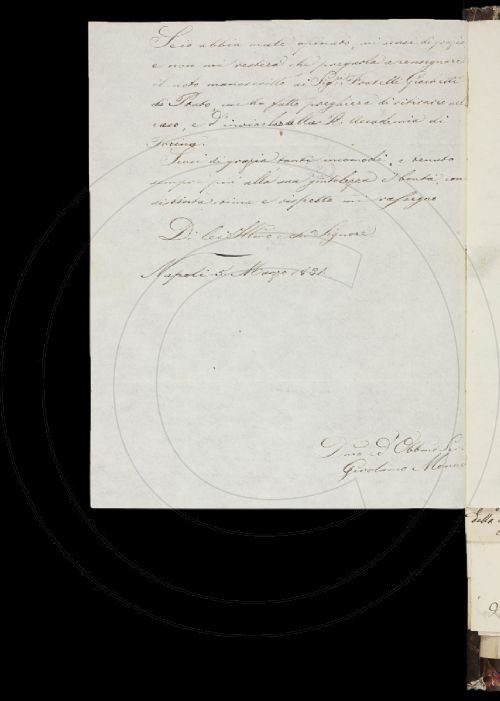 Se io abbia male opinato, mi scusi di grazia
e non mi resterà che pregarla a consegnare
il noto manoscritto ai Sig.ri Fratelli
di Porto, ne ho fatto preghiera di ritirarlo
caso, e d'inviarlo alla R. Accademia di
Torino.
Scusi di grazia tanti incomodi, e tenuto
sempre più alla sua gentilezza e bontà, con
distinta stima e rispetto mi rassegno
Di lei Ill.mo Signore
Napoli 5 Marzo
Dmo ed Obbmo
Girolamo
della